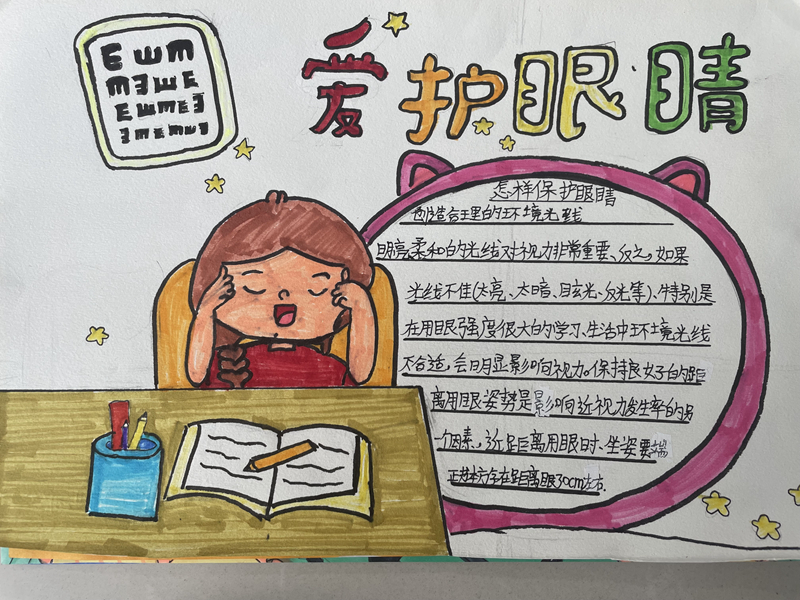 E W M
M 3 W E
E W M E 3
3 M E M W 3
爱护眼睛
怎样保护眼睛
创造合理的环境光线
明亮、柔和的光线对视力非常重要、反之,如果
光线不佳(太亮、太暗、目玄光、反光等)、特别是
在用眼强度很大的学习、生活中环境光线
不合适,会明显影响视力。保持良好的距
离用眼姿势是影响近视力发生率的另
一个因素、近距离用眼时、坐姿要端
正书本方存在距离眼30cm左右.